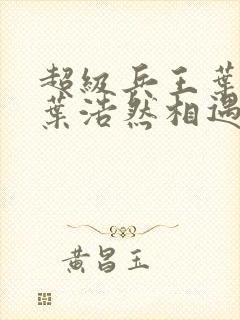 超级兵王葉
葉浩然相遇
黄昌玉